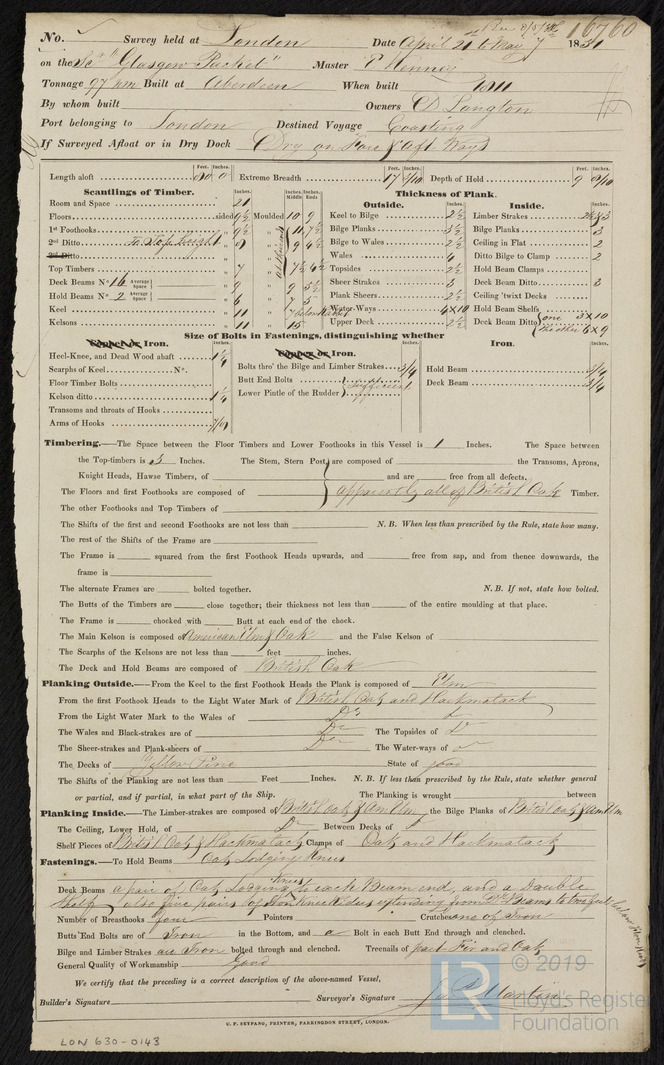 16760
No. Survey held at London Date April 21 to May 7 1851
on the Sc "Glasgow Packet" Master
Tonnage 97 Built at Aberdeen When built 1811
By whom built Owners Langton
Port belonging to London Destined Voyage Coasting
If Surveyed Afloat or in Dry Dock Dry on Fore & Aft Ways
Feet. Inches. Feet. Inches. Feet. Inches.
Length aloft 80 0 Extreme Breadth 17 9/10 Depth of Hold 9 8/10
Scantlings of Timber. Thickness of Plank.
Inches. Inches. Middle Inches. Ends Outside. Inches. Inside. Inches.
Room and Space 21
Floors sided 9½ Moulded 10 9 Keel to Bilge 2½ Limber Strakes
1st Foothooks " 9½ " 7½ Bilge Planks 3½ Bilge Planks 3
2nd Ditto To Top height " 9 " 9 4½ Bilge to Wales 2½ Ceiling in Flat 2
3rd Ditto Wales 4 Ditto Bilge to Clamp 2
Top Timbers " 7 " 7½ 4½ Topsides 2½ Hold Beam Clamps
Deck Beams No. 16 Average Space " 9 " 9 5½ Sheer Strakes 3 Deck Beam Ditto 3
Hold Beams No. 2 Average Space " 6 " 7 5 Plank Sheers 2½ Ceiling 'twixt Decks
Keel " 11 " 7 below Water-Ways 4 x 10 Hold Beam Shelfs
Kelsons " 11 " 15 Upper Deck 2½ Deck Beam Ditto one 3 x 10 the other 6 x 9
Size of Bolts in Fastenings, distinguishing whether
Copper or Iron. Inches. Copper or Iron. Inches. Iron. Inches.
Heel-Knee, and Dead Wood abaft 1¼ Bolts thro' the Bilge and Limber Strakes 3/4 Hold Beam 3/4
Scarphs of Keel No. Butt End Bolts Sufficient Deck Beam 3/4
Floor Timber Bolts Lower Pintle of the Rudder "
Kelson ditto 1¼
Transoms and throats of Hooks
Arms of Hooks 7/8
Timbering.—The Space between the Floor Timbers and Lower Foothooks in this Vessel is 1 Inches. The Space between
the Top-timbers is 3 Inches. The Stem, Stern Post, are composed of the Transoms, Aprons,
Knight Heads, Hawse Timbers, of and are free from all defects.
The Floors and first Foothooks are composed of apparently all of British Oak Timber.
The other Foothooks and Top Timbers of
The Shifts of the first and second Foothooks are not less than N.B. When less than prescribed by the Rule, state how many.
The rest of the Shifts of the Frame are
The Frame is squared from the first Foothook Heads upwards, and free from sap, and from thence downwards, the
frame is
The alternate Frames are bolted together. N.B. If not, state how bolted.
The Butts of the Timbers are close together; their thickness not less than of the entire moulding at that place.
The Frame is chocked with Butt at each end of the chock.
The Main Kelson is composed of American Elm & Oak and the False Kelson of
The Scarphs of the Kelsons are not less than feet inches.
The Deck and Hold Beams are composed of British Oak
Planking Outside.—From the Keel to the first Foothook Heads the Plank is composed of Elm
From the first Foothook Heads to the Light Water Mark of British Oak and Hackmatack
From the Light Water Mark to the Wales of Do
The Wales and Black-strakes are of Do The Topsides of Do
The Sheer-strakes and Plank-sheers of Do The Water-ways of Do
The Decks of Yellow Pine State of good
The Shifts of the Planking are not less than Feet Inches. N.B. If less than prescribed by the Rule, state whether general
or partial, and if partial, in what part of the Ship. The Planking is wrought between
Planking Inside.—The Limber-strakes are composed of British Oak & Am Elm the Bilge Planks of British Oak & Am Elm
The Ceiling, Lower Hold, of Do Between Decks of
Shelf Pieces of British Oak & Hackmatack Clamps of Oak and Hackmatack
Fastenings.—To Hold Beams Oak Lodging Knees
Deck Beams a pair of Oak Lodging Knees to each Beam end, and a Double
Shelf also five pairs of Iron Knee Riders extending from Dk Beams to two feet below Floor Heads
Number of Breasthooks four Pointers Crutches one of Iron
Butts End Bolts are of Iron in the Bottom, and a Bolt in each Butt End through and clenched.
Bilge and Limber Strakes are Iron bolted through and clenched. Treenails of part Fir and Oak
General Quality of Workmanship Good
We certify that the preceding is a correct description of the above-named Vessel,
Builder's Signature Surveyor's Signature Martin
U. F. SEYFANG, PRINTER, FARRINGDON STREET, LONDON.
LON 630-0143
© 2019
LR Lloyd's Register
Foundation